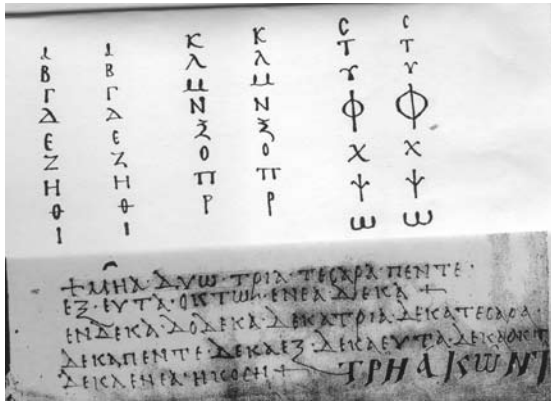 Α Β Γ Δ Ε Ζ Η Θ Ι
Α Β Γ Δ Ε Ζ Η Θ Ι
Κ Λ Μ Ν Ξ Ο Π Ρ
Κ Λ Μ Ν Ξ Ο Π Ρ
Ϲ Τ Υ Φ Χ Ψ Ω
Ϲ Τ Υ Φ Χ Ψ Ω
+ ΜΗΑ·ΔΥΩ·ΤΡΙΑ·ΤΕϹΑΡΑ·ΠΕΝΤΕ·
ΕΞ·ΕΥΤΑ·ΟΚΤΩ·ΕΝΕΑ·ΔΕΚΑ +
ΕΝΔΕΚΑ·ΔΟΔΕΚΑ·ΔΕΚΑΤΡΙΑ·ΔΕΚΑΤΕϹΑΡΑ·
ΔΕΚΑΠΕΝΤΕ·ΔΕΚΑΕΞ·ΔΕΚΑΕΥΤΑ·
ΔΕΚΑΕΝΕΑ·ΗΚΟϹΗ +